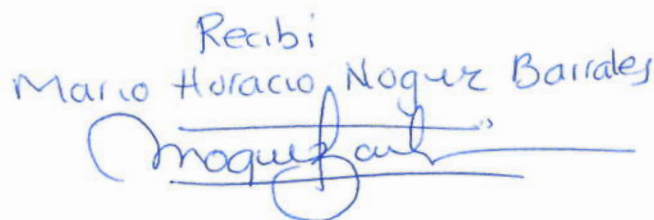 Recibi
Mario Horacio Noguez Barrales